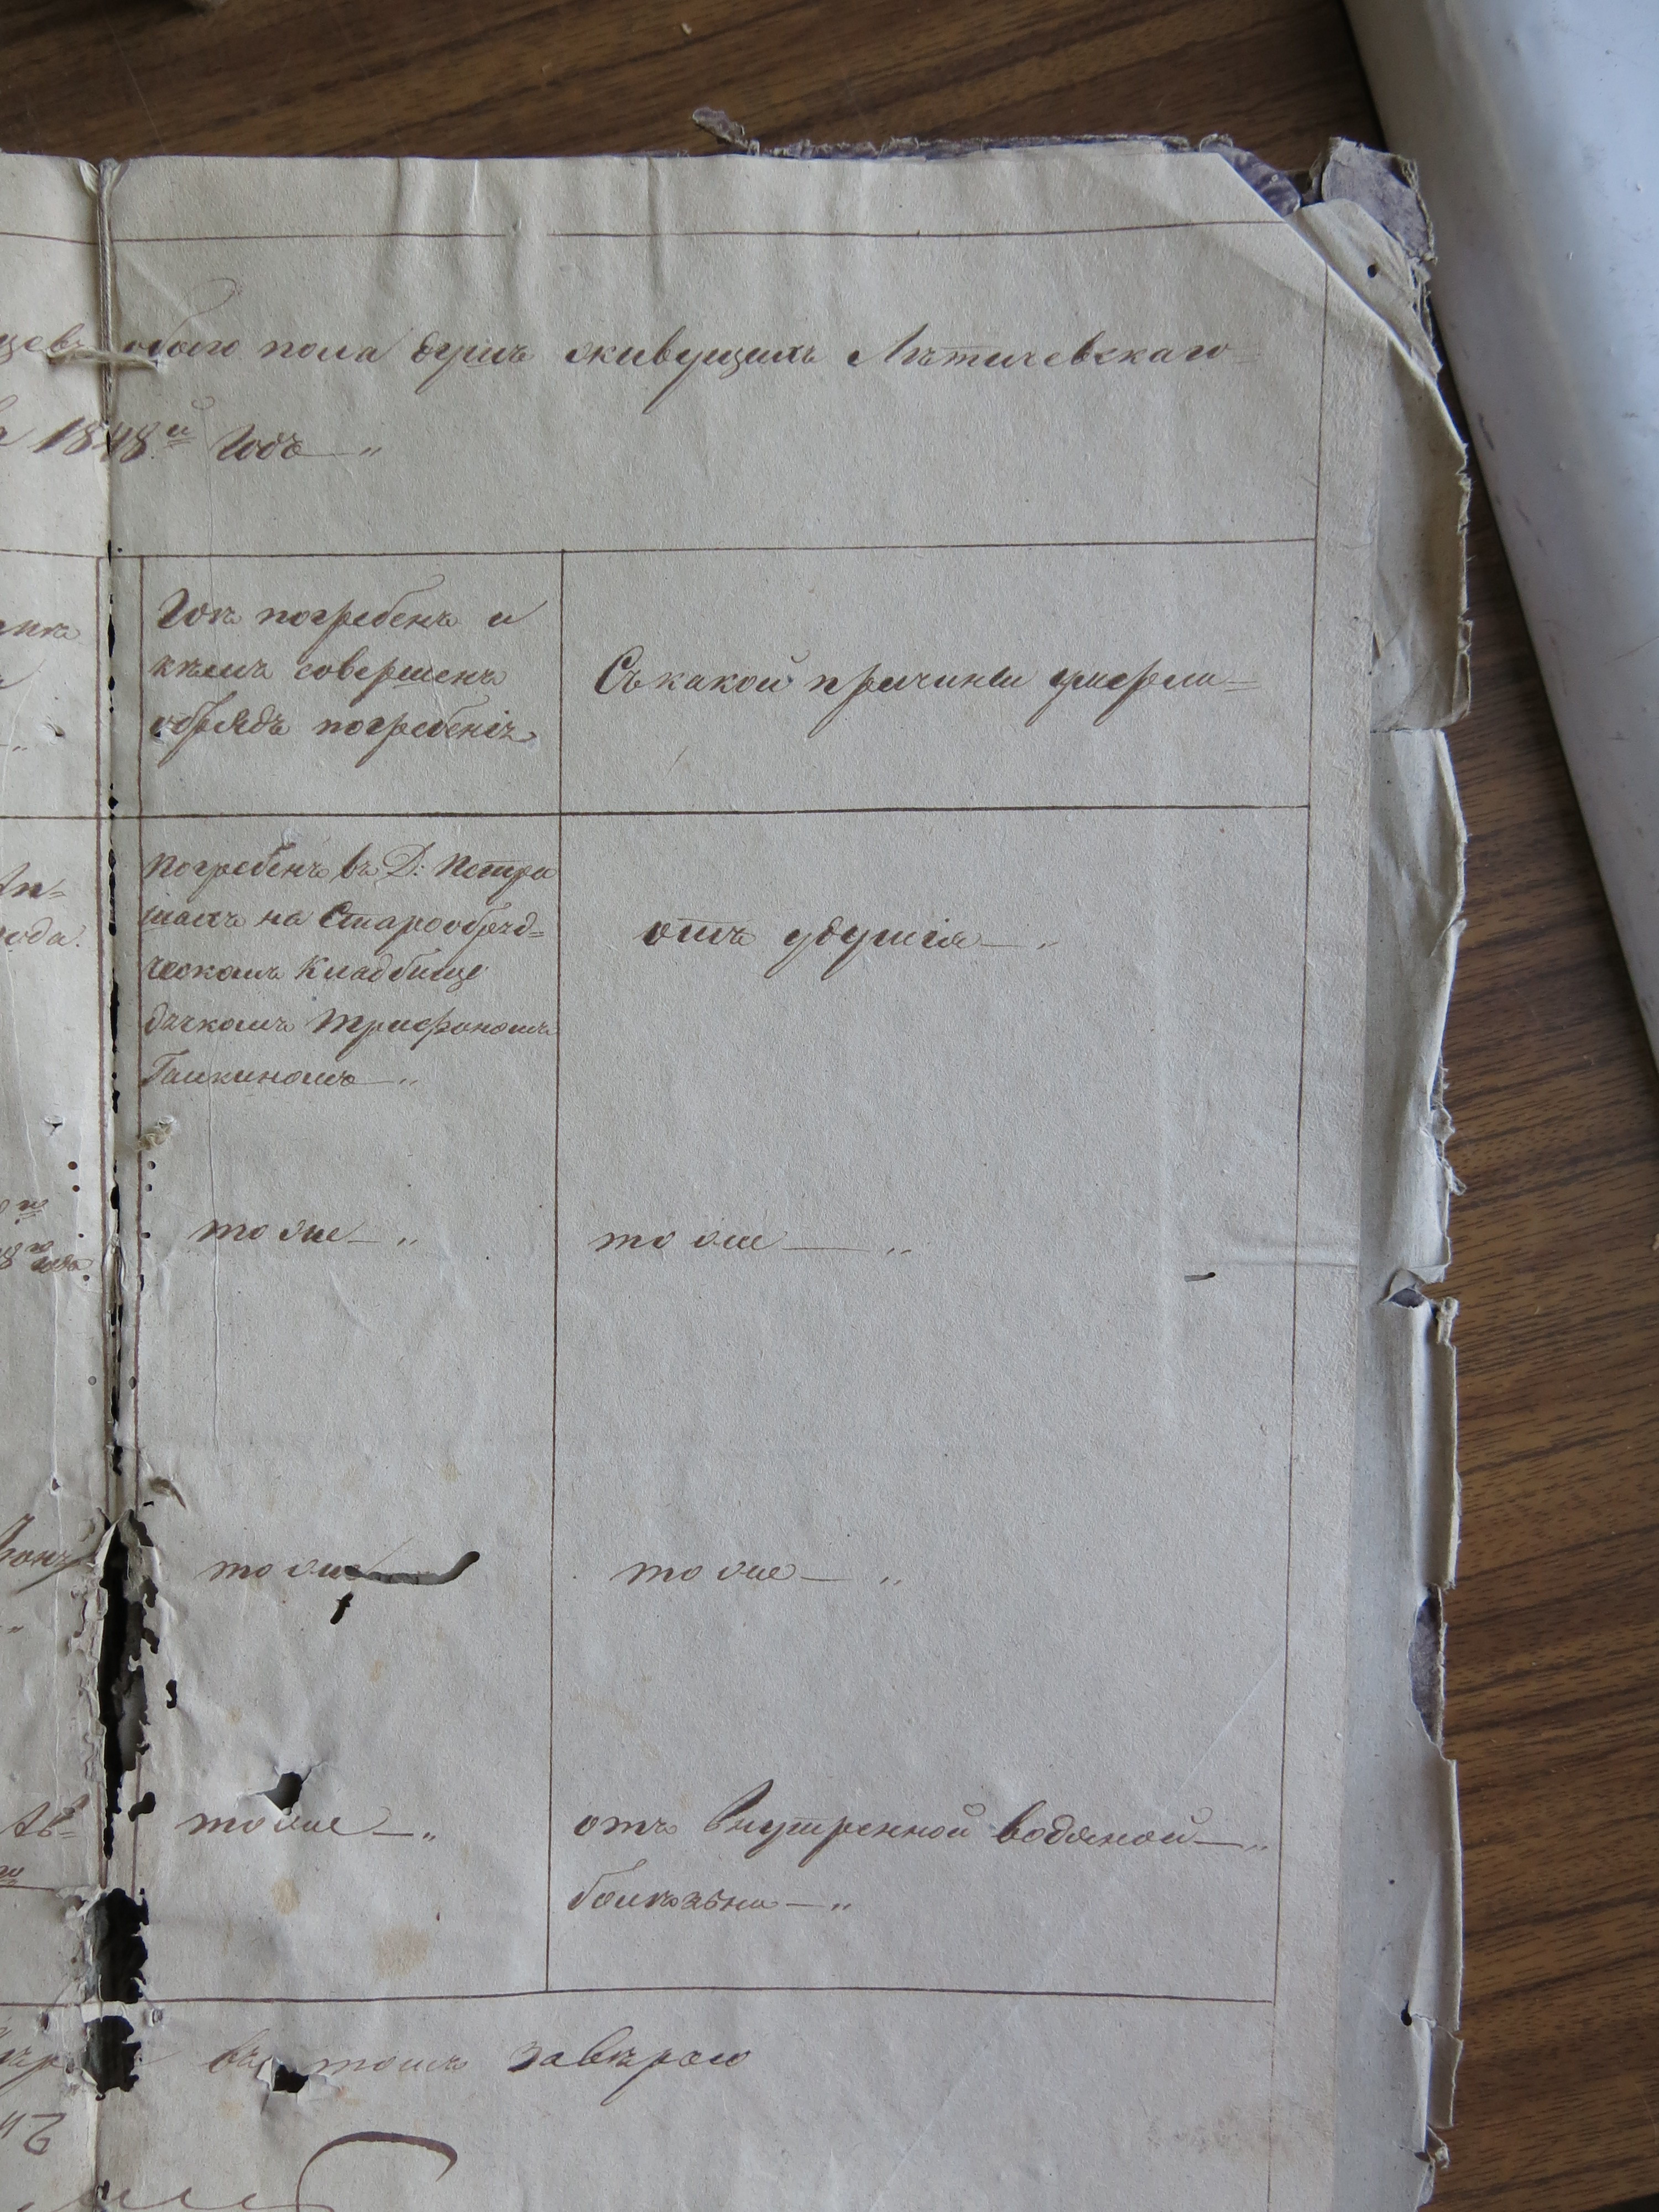 обоего пола душъ живущихъ Лѣтичевскаго
1848й Годъ
Гдѣ погребенъ и
кѣмъ совершенъ
обрядъ погребенія
Съ какой причины умерли
Погребенъ въ Д: Петра
шахъ на Старообрѧд=
ческомъ Кладбище
дячкомъ Трифономъ
Галкиномъ
отъ удушія
тоже
тоже
тоже
тоже
тоже
отъ Внутренной водяной
болѣзьни
въ томъ завѣряю